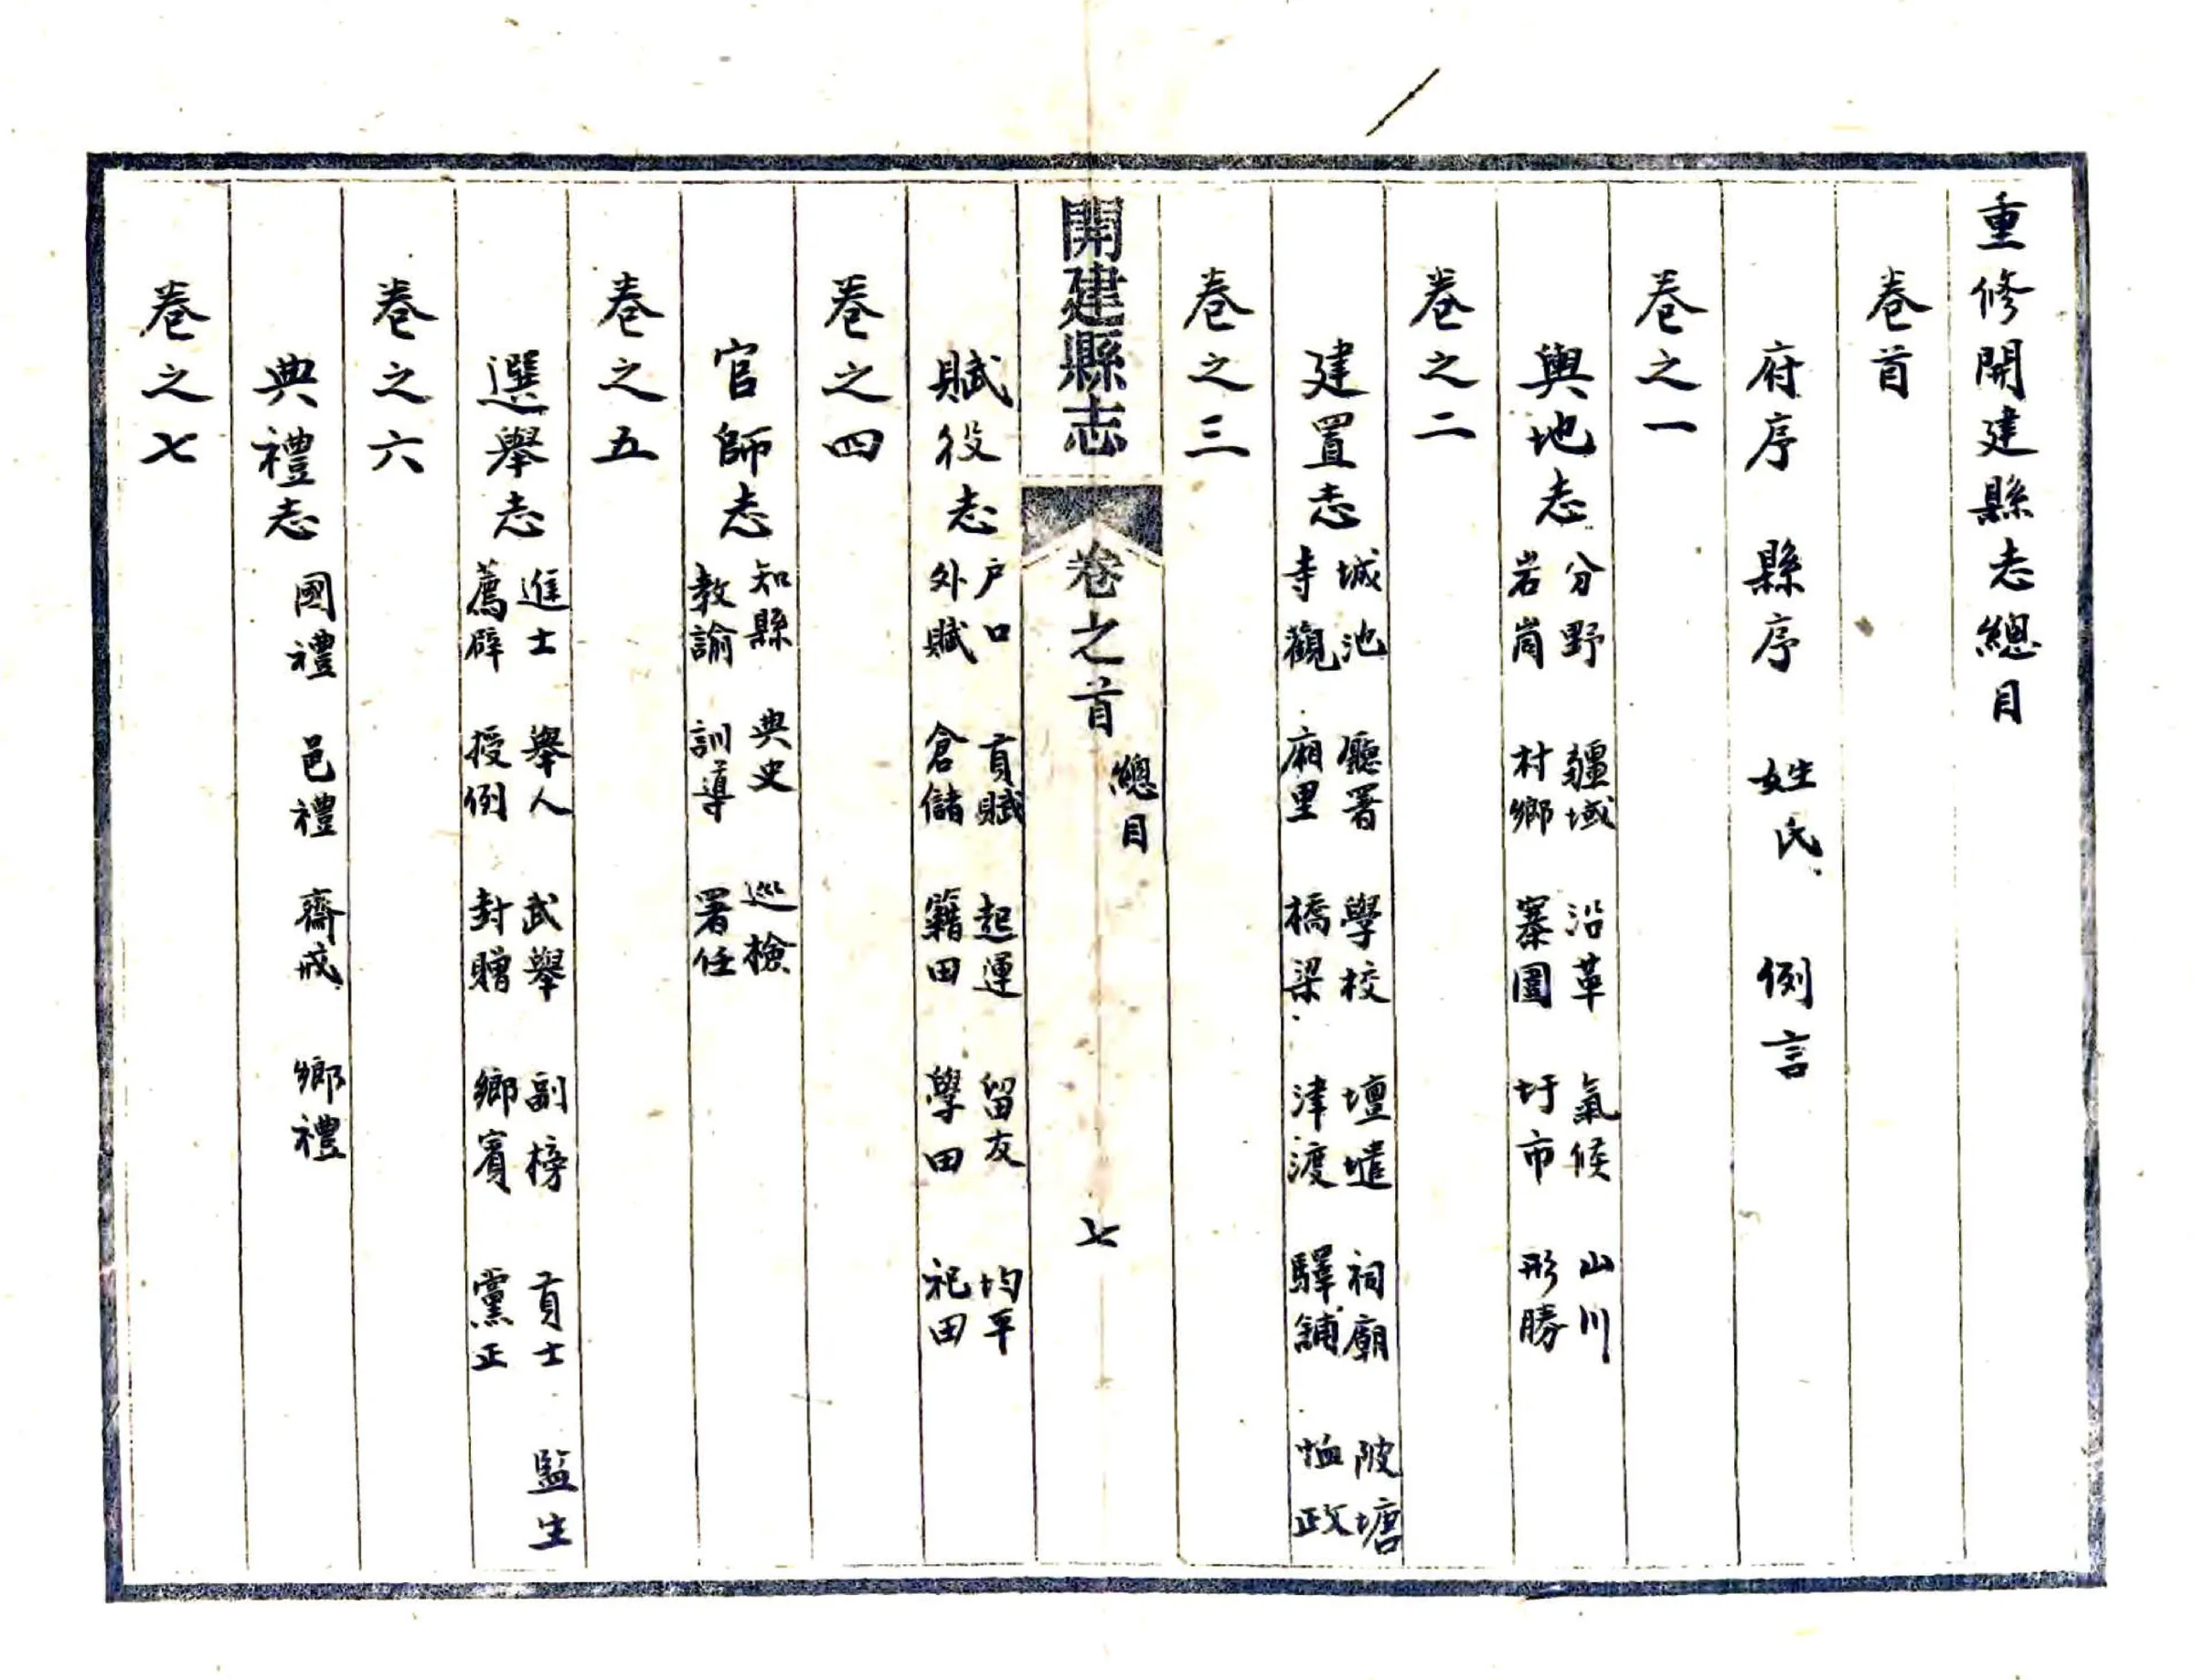 重修開建縣志總目
卷首
府序 縣序 姓氏 例言
卷之一
輿地志 分野 疆域 沿革 氣候 山川
岩崗 村鄉 寨圍 圩市 形勝
卷之二
建置志 城池 廳署 學校 壇壝 祠廟 陂塘
寺觀 廂里 橋梁 津渡 驛舖 恤政
卷之三
開建縣志 卷之首 總目 七
賦役志 户口 貢賦 起運 留支 均平
外賦 倉儲 籍田 學田 祀田
卷之四
官師志 知縣 典史 巡檢
教諭 訓導 署任
卷之五
選舉志 進士 舉人 武舉 副榜 貢士 監生
薦辟 授例 封贈 鄉賓 黨正
卷之六
典禮志 國禮 邑禮 齋戒 鄉禮
卷之七